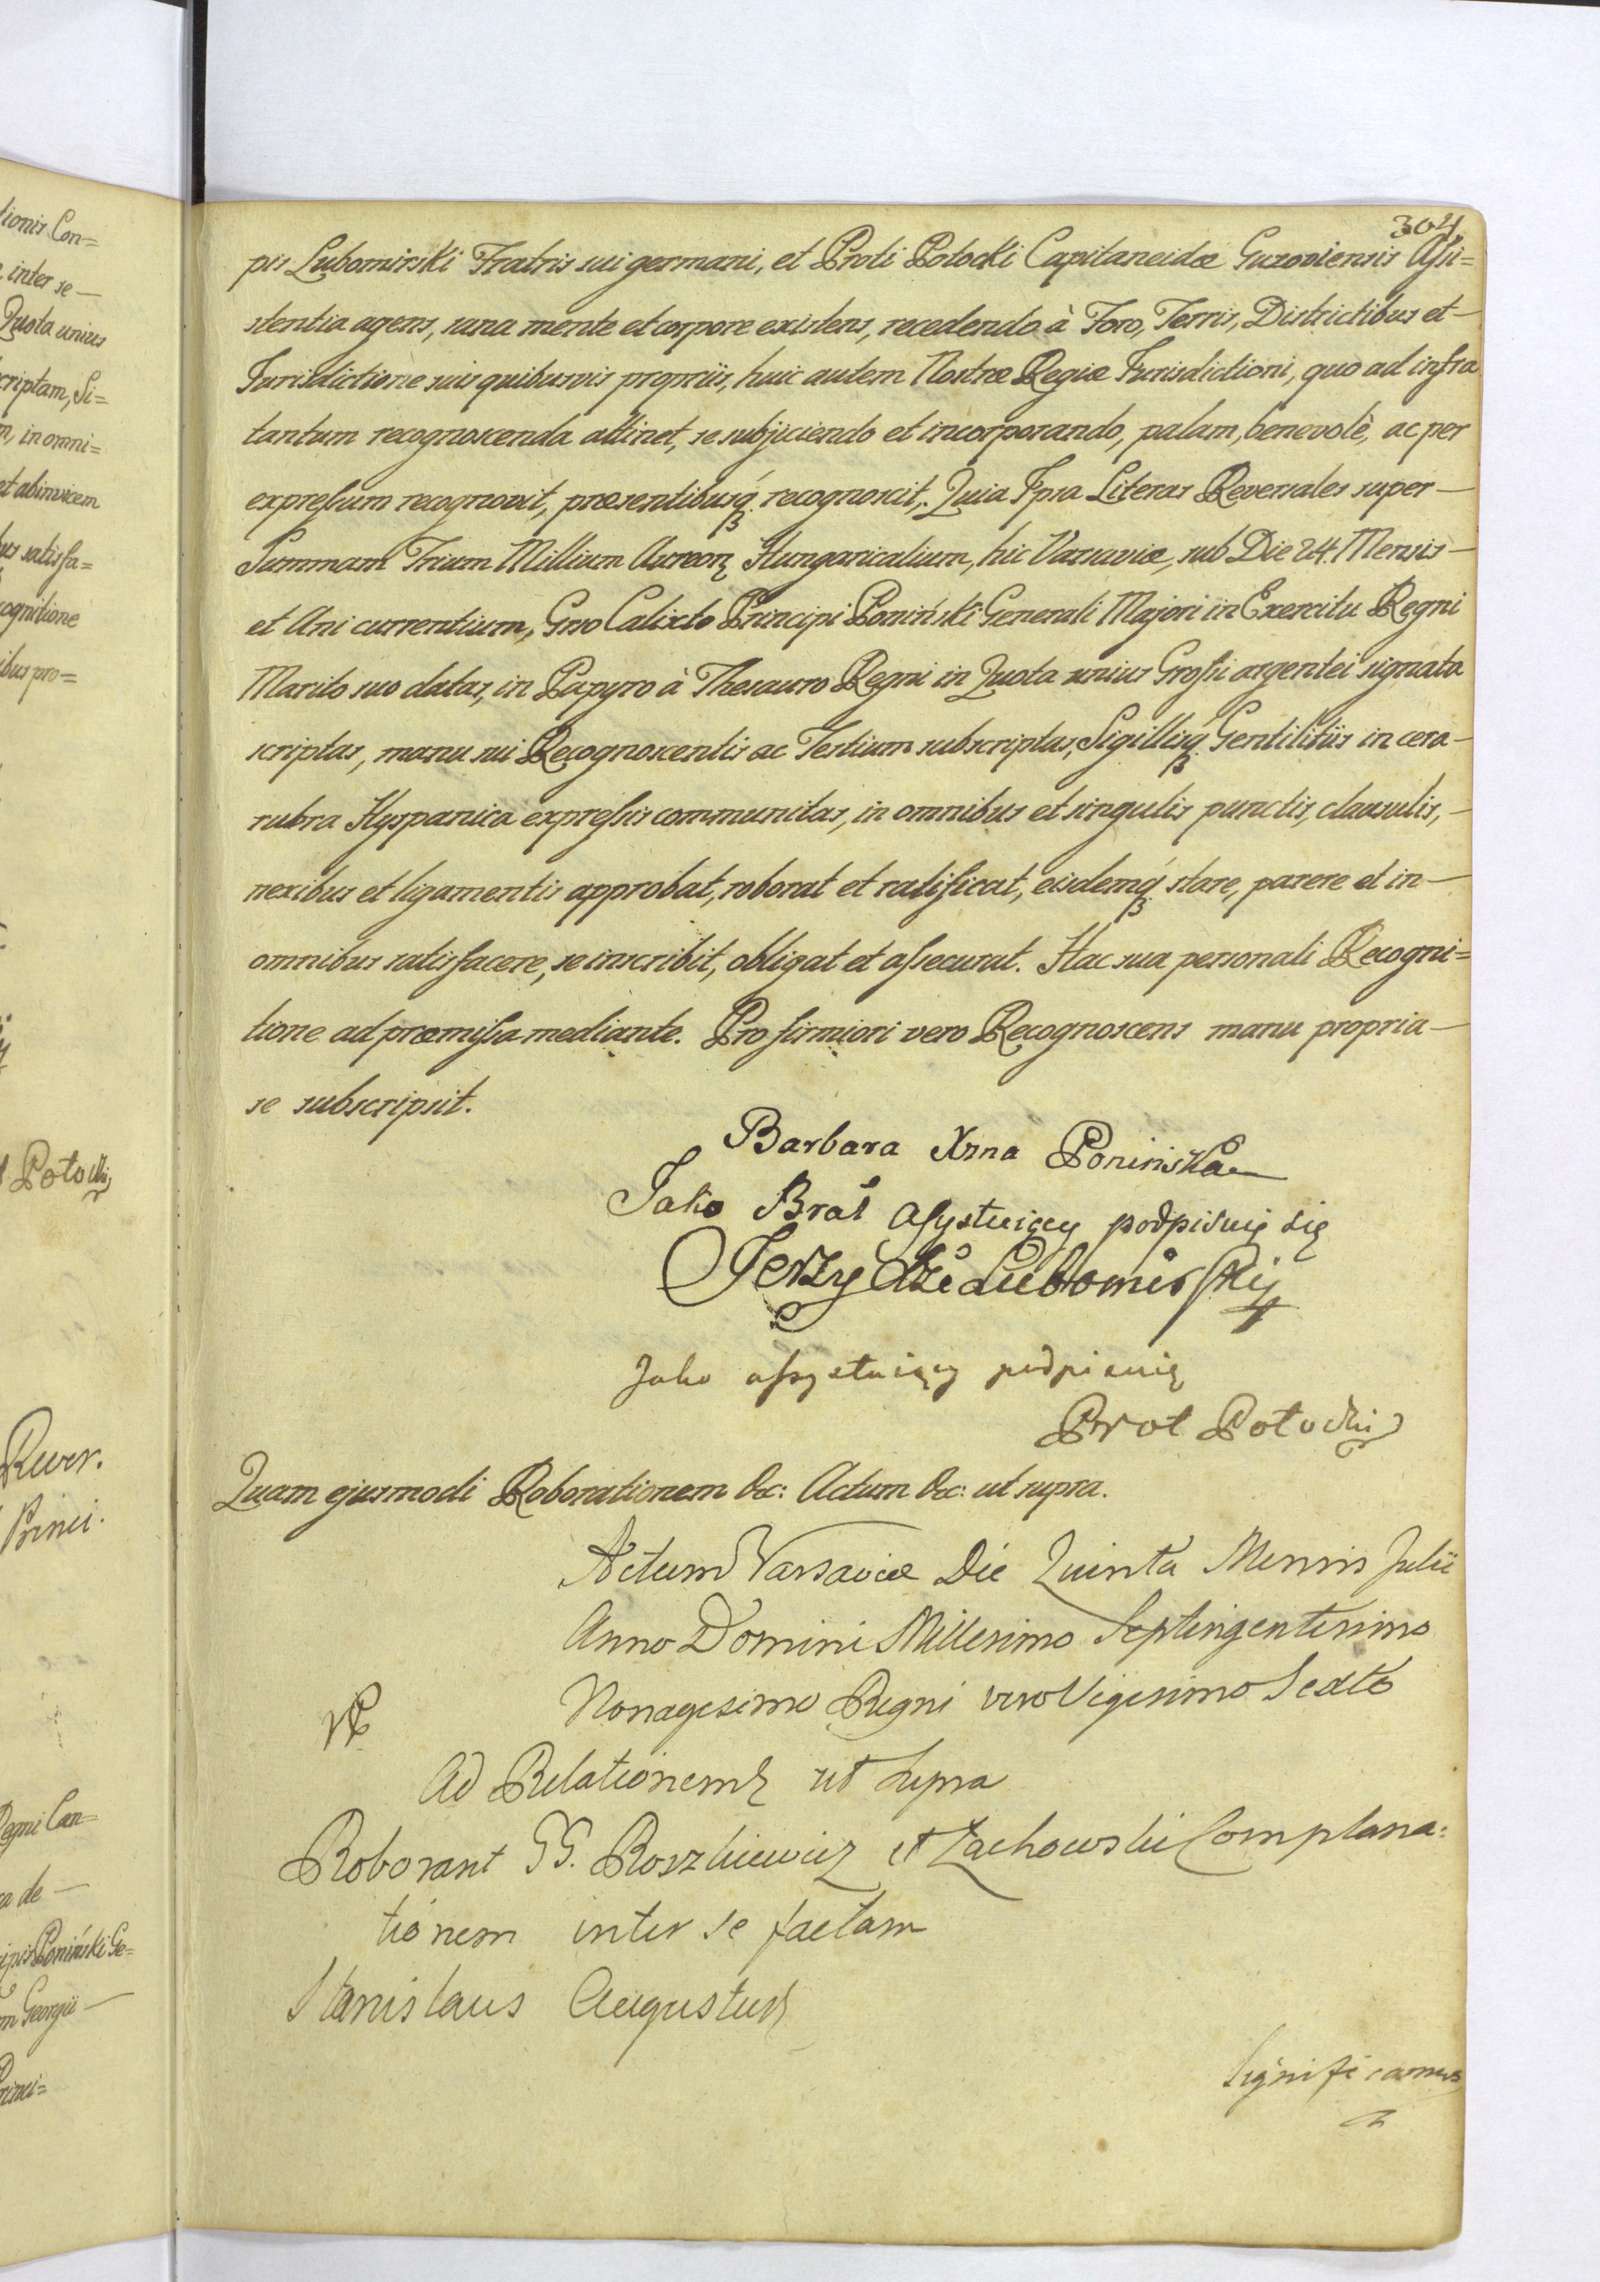 tionis Con=
inter se —
Quota unius
criptam, Si=
m, in omni=
et abinvicem
bus satisfa=
cognitione
ibus pro=
Potocki
Rever.
Princi.
Regni Can=
ca de —
cipis Poniński Ge=
m Georgii —
Princi=
304
pis Lubomirski Fratris sui germani, et Proti Potocki Capitaneidæ Guzoviensis Aſsi=
stentia agens, sana mente et corpore existens, recedendo à Foro, Terris, Districtibus et —
Jurisdictione suis quibusvis propriis, huic autem Nostræ Regiæ Jurisdictioni, quo ad infra
tantum recognoscenda attinet, se subjiciendo et incorporando, palam, benevolè, ac per
expreſsum recognovit, præsentibusq́ recognoscit. Quia Ipsa Literas Reversales super —
Summam Trium Millium Aureorꝝ Hungaricalium, hic Varsaviæ, sub Die 24. Mensis —
et Ani currentium, Gnso Calixto Principi Poniński Generali Majori in Exercitu Regni
Marito suo datas, in Papyro à Thesauro Regni in Quota unius Groſsi argentei signata
scriptas, manu sui Recognoscentis ac Testium subscriptas, Sigillisq́ Gentilitiis in cera —
rubra Hyspanica expreſsis communitas, in omnibus et singulis punctis, clausulis, —
nexibus et ligamentis approbat, roborat et ratificat, eisdemq́ stare, parere et in —
omnibus satisfacere, se inscribit, obligat et aſsecurat. Hac sua personali Recogni=
tione ad præmiſsa mediante. Pro firmiori vero Recognoscens manu propria —
se subscripsit.
Barbara Xżna Ponińska
Jako Brat aſystuiący podpisuię się
Jerzy Xże Lubomirſkij
Jako aſsystuiący podpisuię
Prot Potocki
Quam ejusmodi Roborationem &c: Actum &c: ut supra.
Actum Varsaviæ Die Quinta Mensis Julii
Anno Domini Millesimo Septingentesimo
Nonagesimo Regni vero Vigesimo Sexto
Ad Relationem ut supra
Roborant GG. Roszkiewicz et Zachowski Complana=
tionem inter se factam
Stanislaus Augustus
Significamus